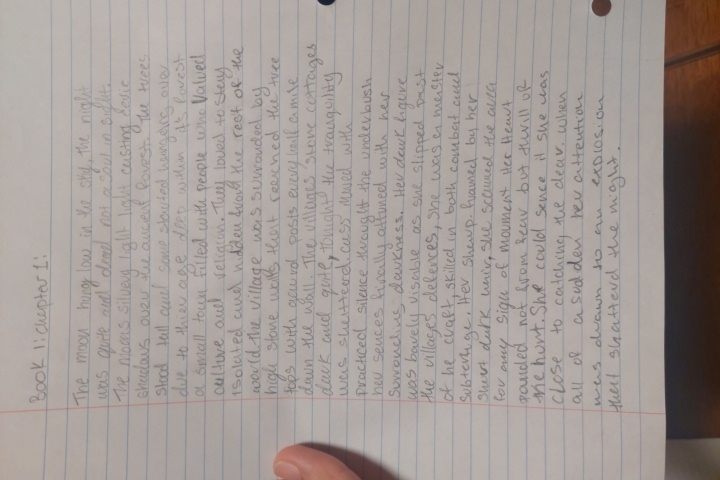 Book 1: chapter 1:
The moon hangs low in the sky, The night
was quite and dead not a soul in sight.
The moons silvery light light casting eerie
shadows over the ancient forest. The trees
stood tall and some started hanging over
due to their age deep within its forest
a small town filled with people who valued
culture and religion. They loved to stay
isolated and hidden from the rest of the
world. The village was surrounded by
high stone walls that reached the tree
tops with guard posts every half a mile
down the wall. The villages stone cottages
dark and quite, tonight the tranquility
was shattered, Russ moved with
practiced silence throught the underbush
her sences finally attuned with her
surronding darkness. Her dark figure
was barely visable as she slipped past
the villages defences, she was a master
of he craft, skilled in both combat and
subterfuge. Her sharp framed by her
short dark hair, she scanned the area
for any sign of movment Her Heart
rounded not from fear but thrill of
the hunt. She could sence it she was
close to catching the dear. when
all of a sudden her attention
was drawn to an explosion
that shattered the night.